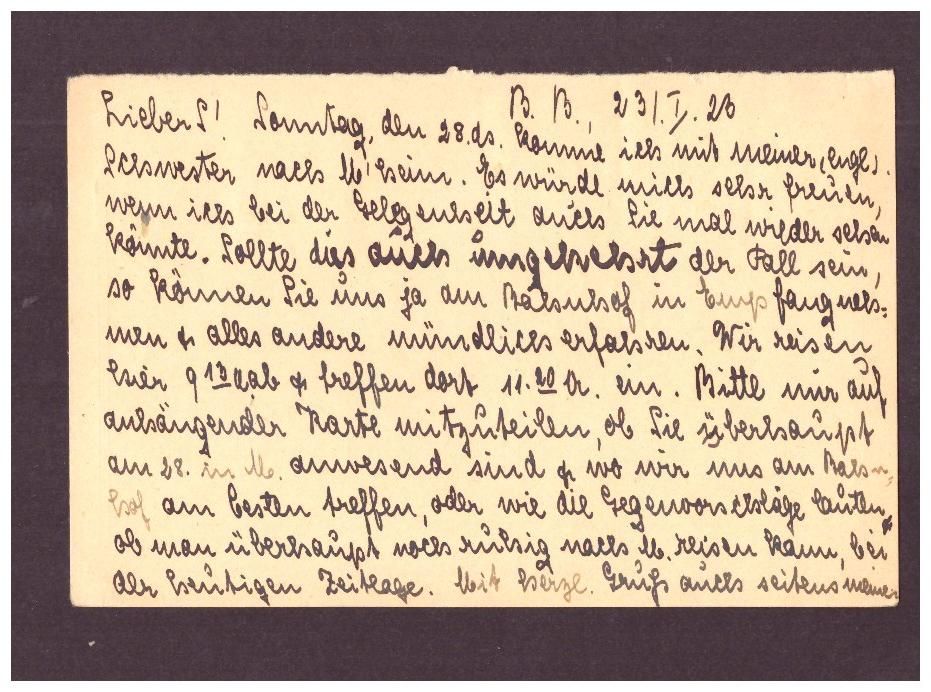 B. B., 23/I. 23
Lieber S! Sonntag, den 28. ds. komme ich mit meiner (engl.)
Schwester nach M'heim. Es würde mich sehr freuen,
wenn ich bei der Gelegenheit auch Sie mal wieder sehen
könnte. Sollte dies auch umgekehrt der Fall sein,
so können Sie uns ja am Bahnhof in Empfang neh=
men & alles andere mündlich erfahren. Wir reisen
hier 9 13 ab & treffen dort 11.20 U. ein. Bitte mir auf
anhängender Karte mitzuteilen, ob Sie überhaupt
am 28. in M. anwesend sind & wo wir uns am Bahn=
hof am besten treffen, oder wie die Gegenvorschläge lauten,
ob man überhaupt noch ruhig nach M. reisen kann, bei
der heutigen Zeitlage. Mit herzl. Gruß auch seitens meiner